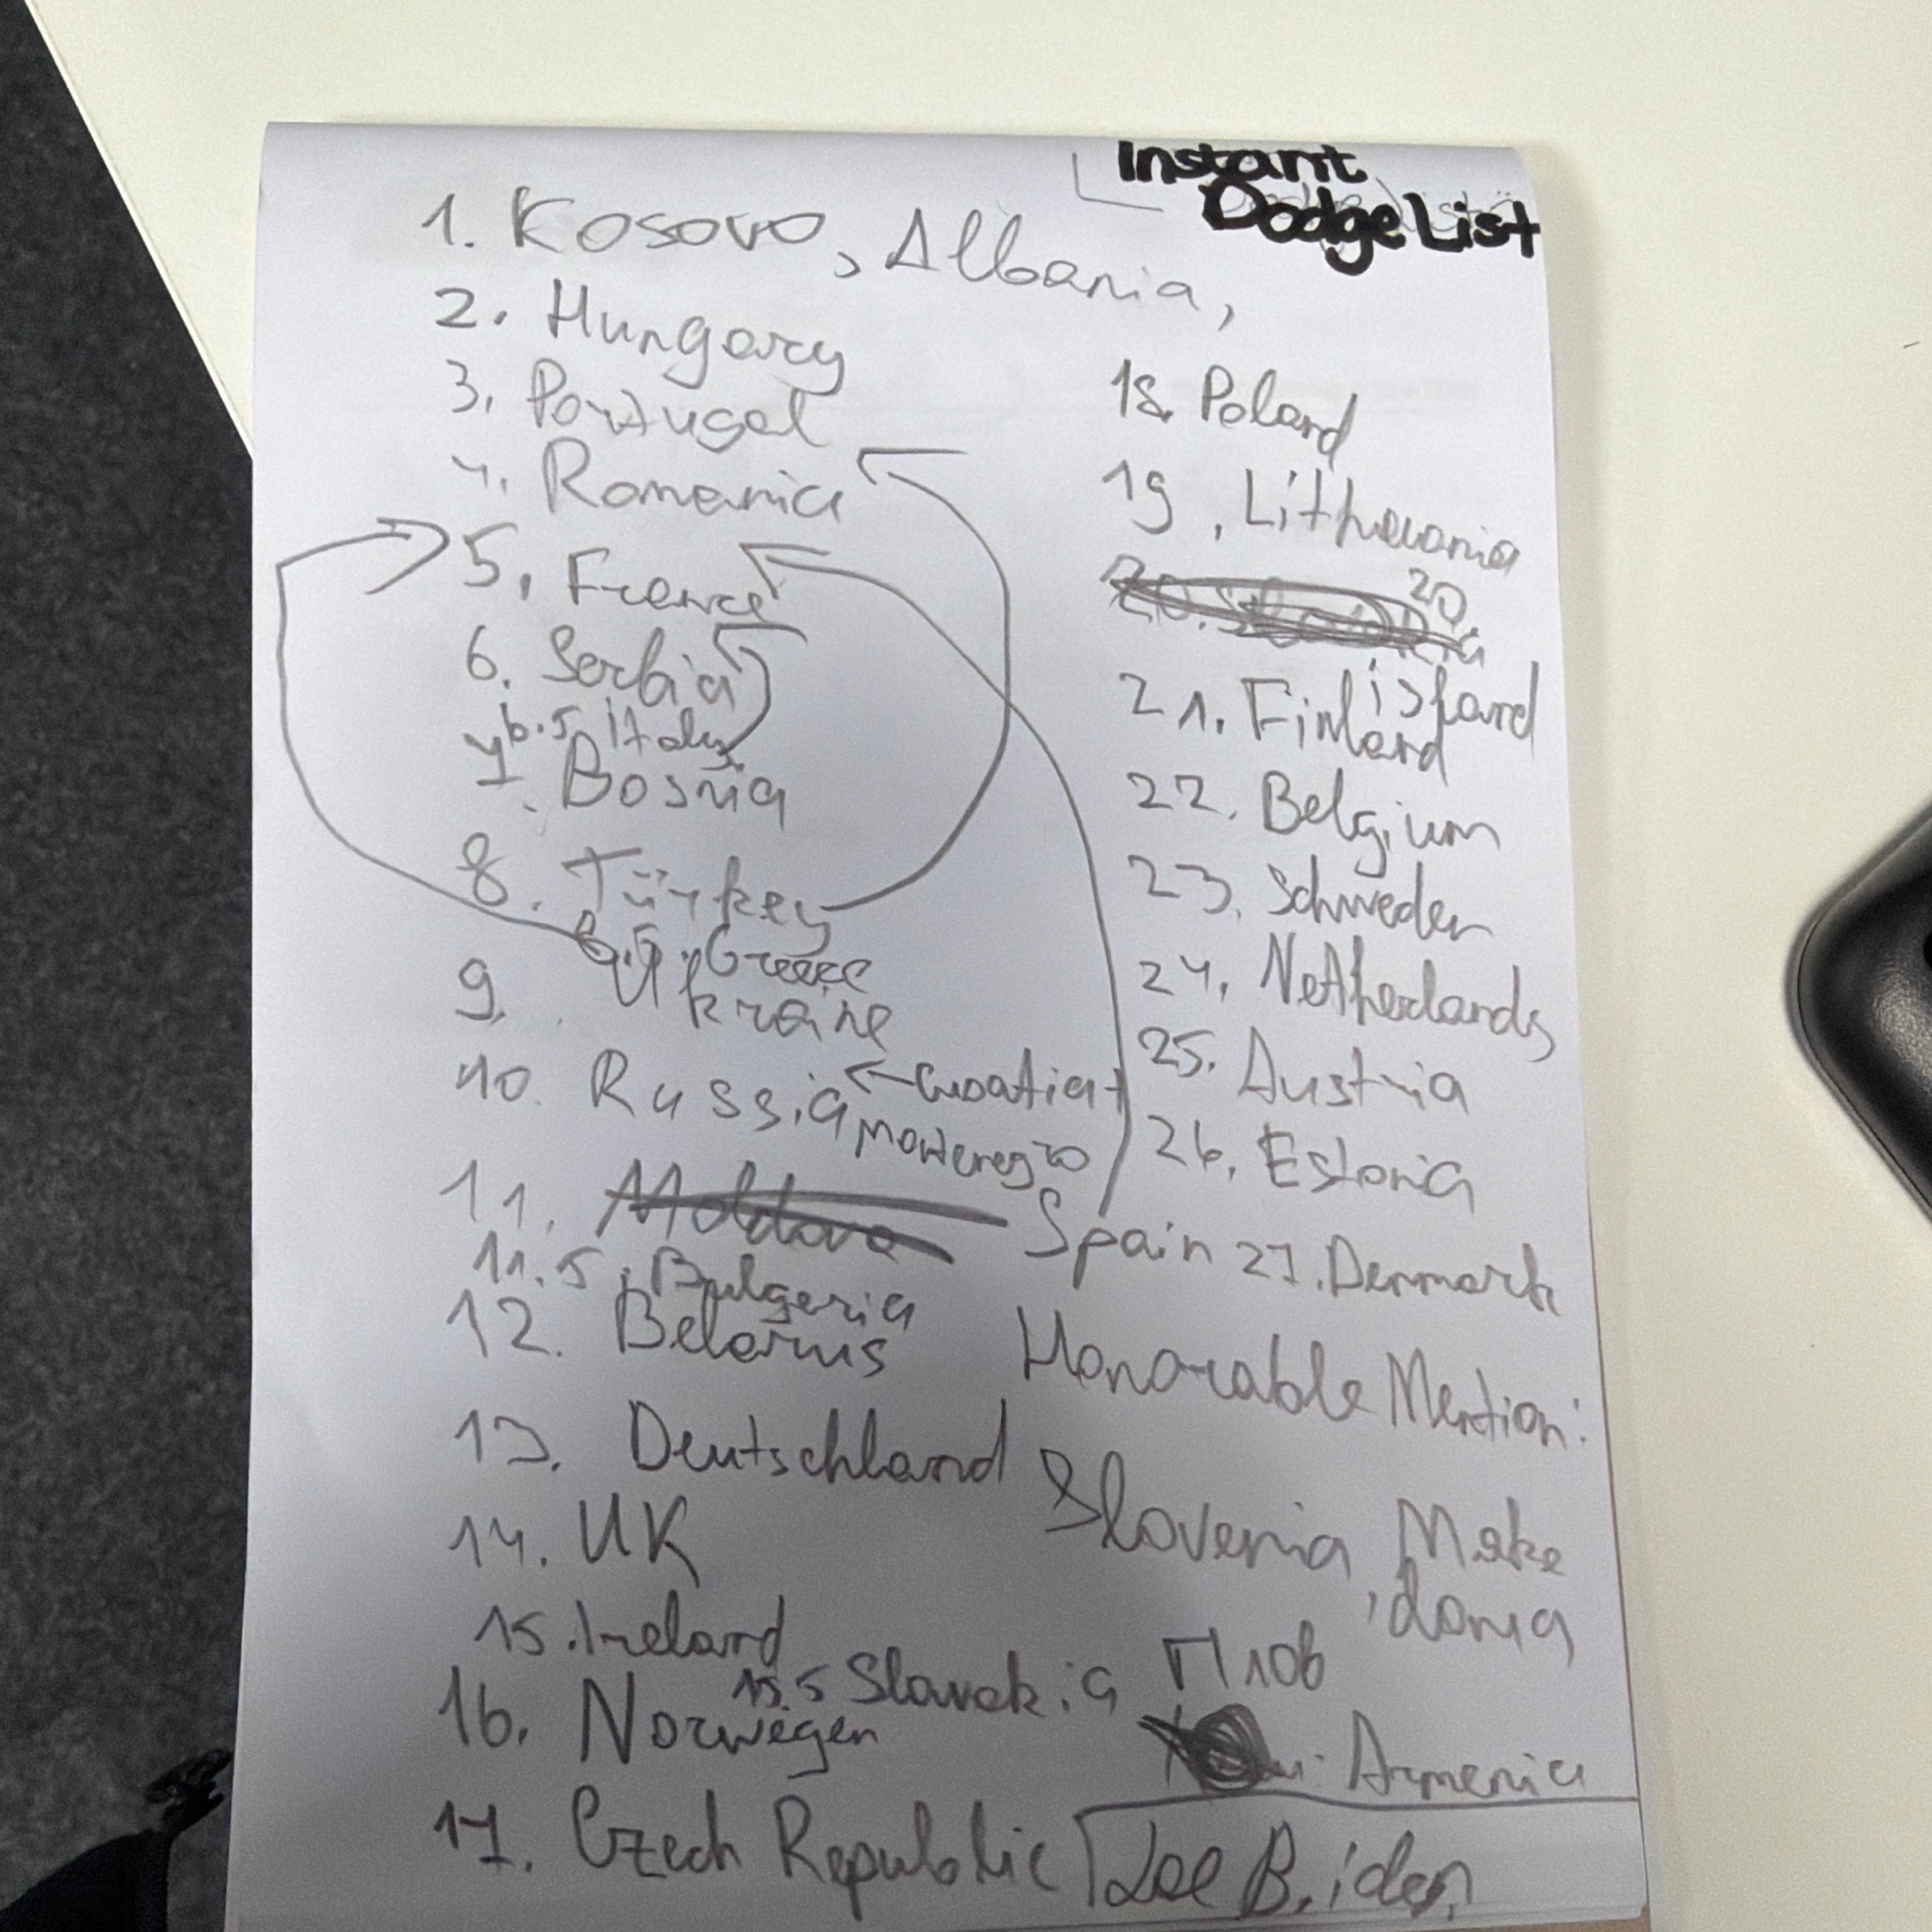 Instant
Dodge List
1. Kosovo, Albania,
2. Hungary
3. Portugal
4. Romania
5. France
6. Serbia
6.5 Italy
7. Bosnia
8. Türkey
8.5. Greece
9. Ukraine
10. Russia ← Croatia +
Montenegro
11. Moldova Spain
11.5. Bulgaria
12. Belarus
13. Deutschland
14. UK
15. Ireland
15.5 Slovakia
16. Norwegen
17. Czech Republic
18. Poland
19. Lithuania
20.
island
21. Finland
22. Belgium
23. Schweden
24. Netherlands
25. Austria
26. Estonia
27. Denmark
Honorable Mention:
Slovenia, Make
donia
Armenia
Joe Biden